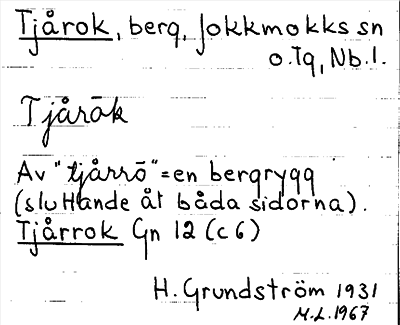 Tjårok, berg, Jokkmokks sn
o. Tg, Nb. l.
Tjårāk
Av "tjårrō" = en bergrygg
(sluttande åt båda sidorna).
Tjårrok Gn 12 (c 6)
H. Grundström 1931
M.L. 1967